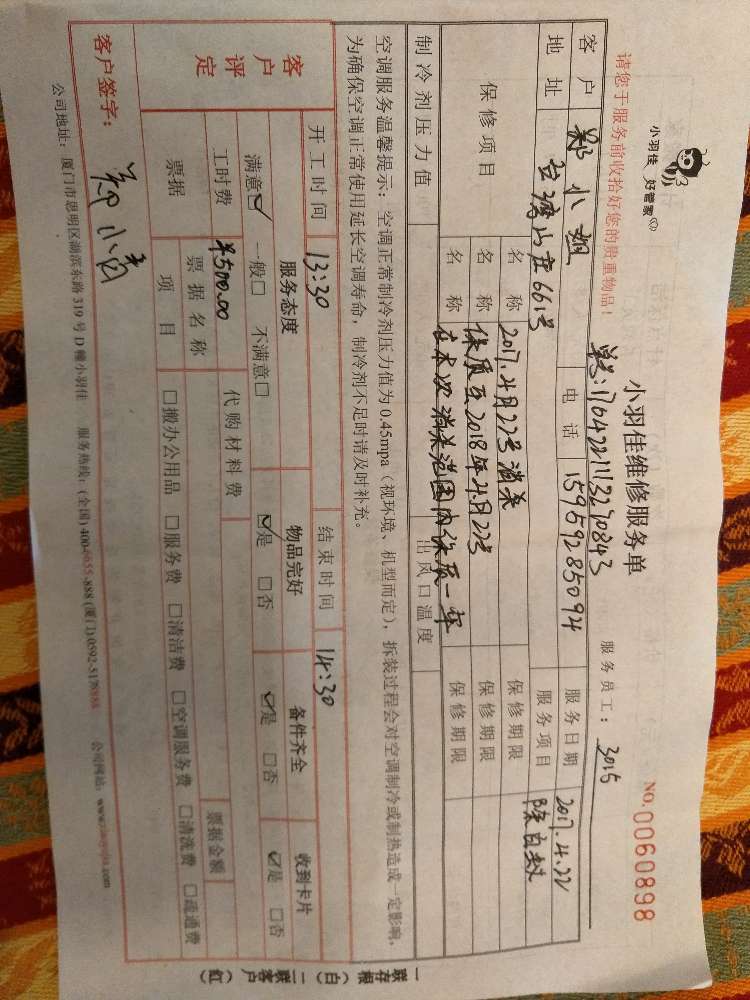 小羽佳 好管家
小羽佳维修服务单
NO. 0060898
请您于服务前收拾好您的贵重物品!
单号:1704221113270843
服务员工: 3015
客户 郑小姐 电话 15959285094 服务日期 2017.4.22
地址 6613 服务项目 除白蚁
保修项目 名称 2017.4月22号消杀 保修期限
名称 保质至2018年4月22号 保修期限
名称 在本次消杀范围内保质一年 保修期限
制冷剂压力值 出风口温度
空调服务温馨提示:空调正常制冷剂压力值为0.45mpa(视环境、机型而定),拆装过程会对空调制冷或制热造成一定影响,
为确保空调正常使用延长空调寿命,制冷剂不足时请及时补充。
开工时间 13:30 结束时间 14:30
客户评定 服务态度 物品完好 备件齐全 收到卡片
满意☑ 一般□ 不满意□ ☑是 □否 ☑是 □否 ☑是 □否
工时费 ¥500.00 代购材料费
票据 票据名称 票据金额
项目 □搬办公用品 □服务费 □清洁费 □空调服务费 □清洗费 □疏通费
客户签字:
公司地址:厦门市思明区湖滨东路319号D幢小羽佳 服务热线:(全国)400-6655-888(厦门)0592-5178888 公司网站:www.xiaoyujia.com
一联存根(白) 二联客户(红)